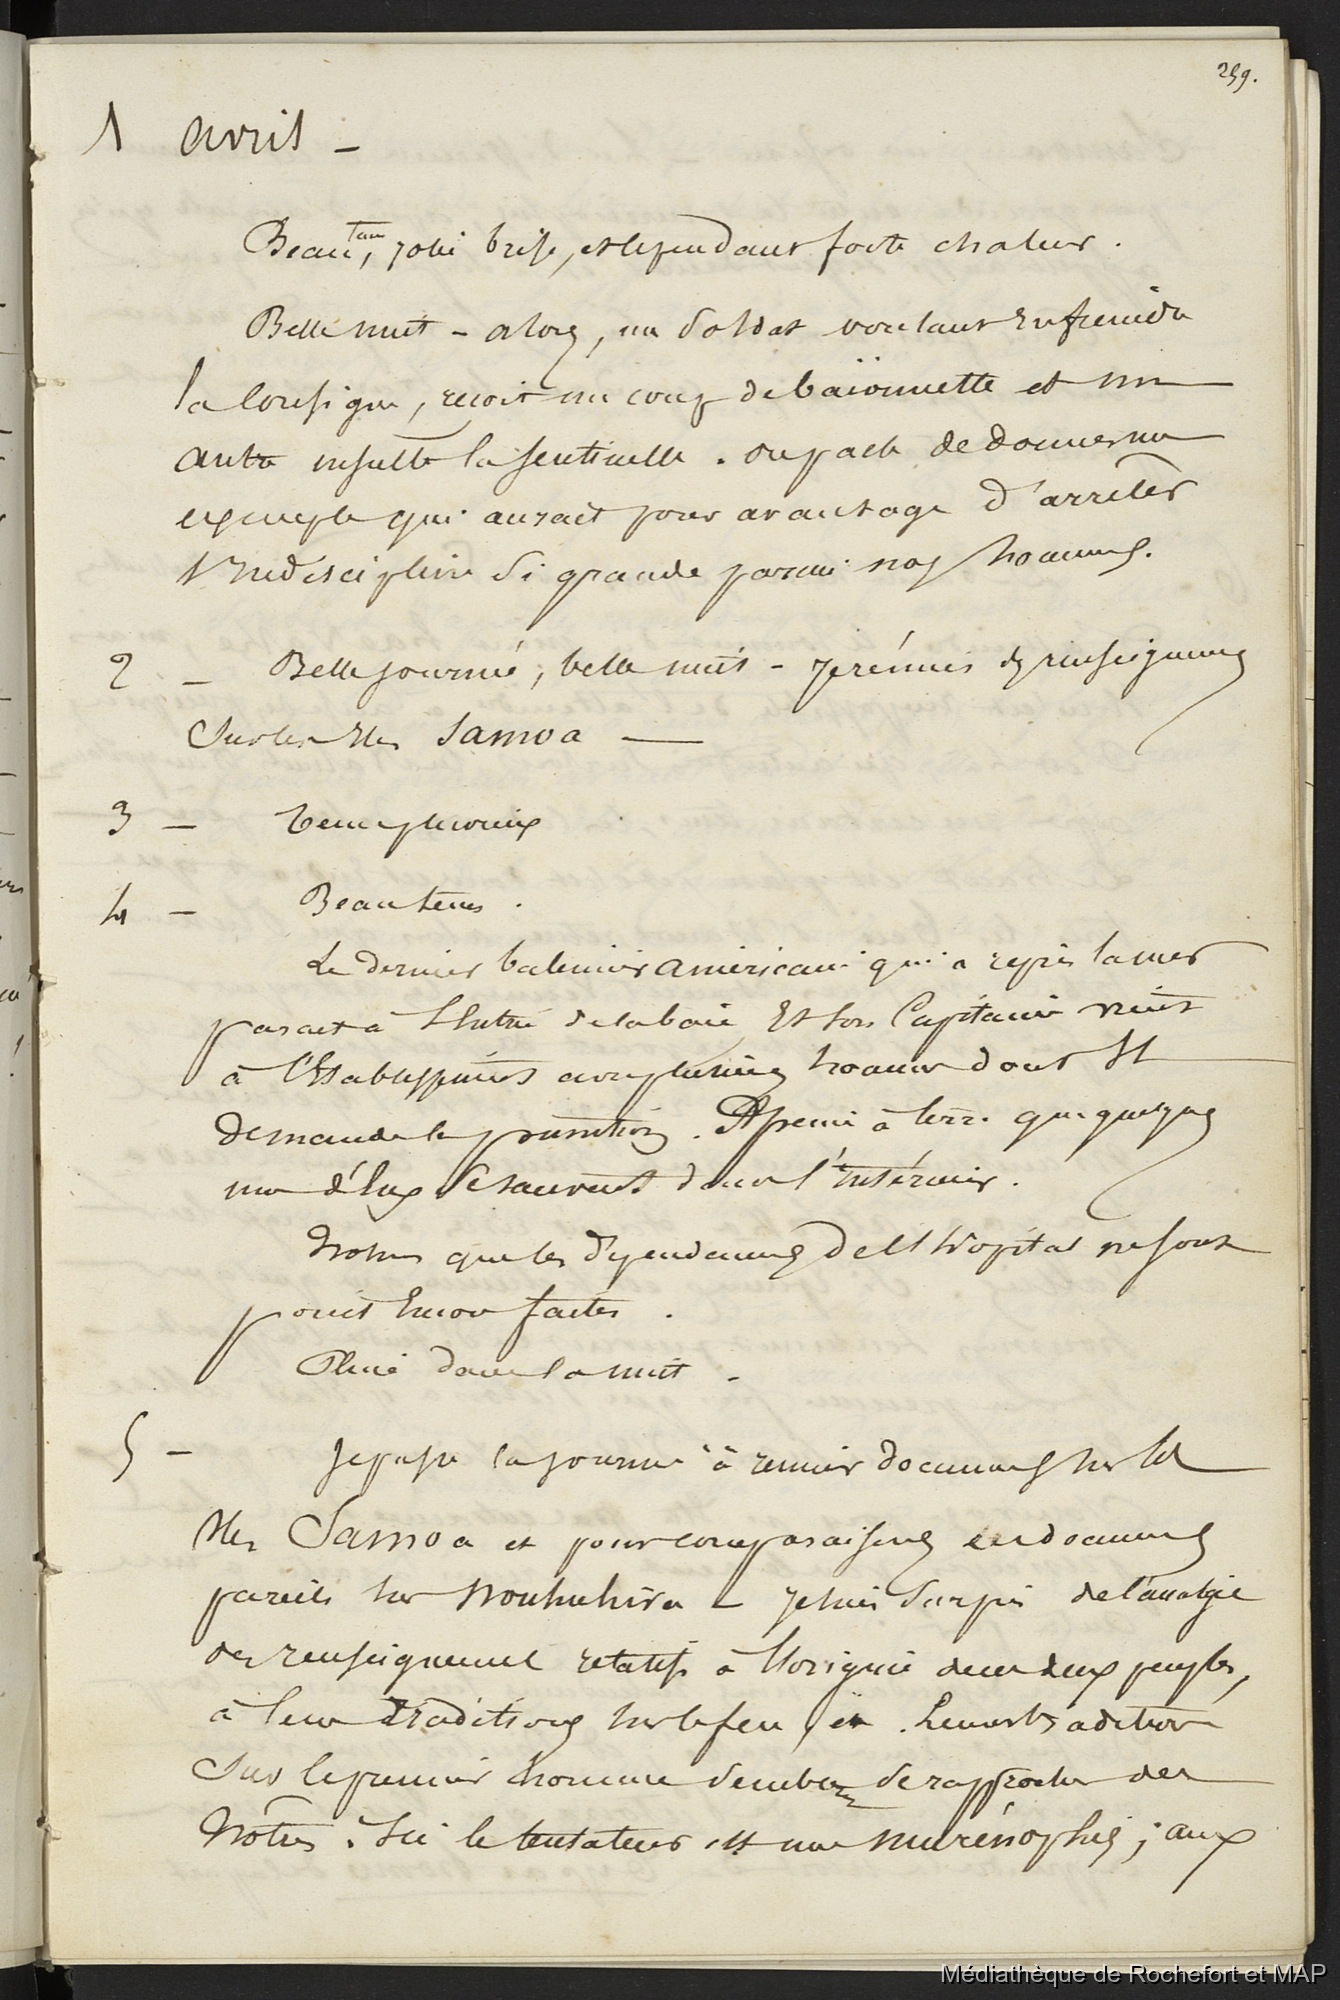 259.
1 avril -
Beau tems, jolie brise, et cependant forte chaleur.
Belle nuit - a 10h, un soldat voulant enfreindre
la consigne, reçoit un coup de baïonnette et un
autre insulte la sentinelle. on parle de donner un
exemple qui aurait pour avantage d'arrêter
l'indiscipline si grande parmi nos hommes.
2 - Belle journée, belle nuit - je réunis des renseignemens
sur les Iles Samoa -
3 - Tems pluvieux
4 - Beau tems.
Le dernier baleinier américain qui a repris la mer
parait à l'entrée de la baie et son Capitaine vient
à l'Etablissement avec plusieurs hommes dont Il
demande la punition. A peine à terre que quelques
uns d'eux se sauvent dans l'intérieur.
Notons que les dépendances de l'hôpital ne sont
point encore faites.
Pluie dans la nuit.
5 - Je passe la journée à réunir documens sur les
Iles Samoa et pour comparaisons des documens
pareils sur Nouhuhiva - je suis surpris de l'analogie
des renseignemens relatifs à l'origine de ces deux peuples,
à leurs traditions sur le feu, et leurs traditions
sur le premier homme semblent se rapprocher des
nôtres. Ici le tentateur est une murénophis ; aux
Médiathèque de Rochefort et MAP